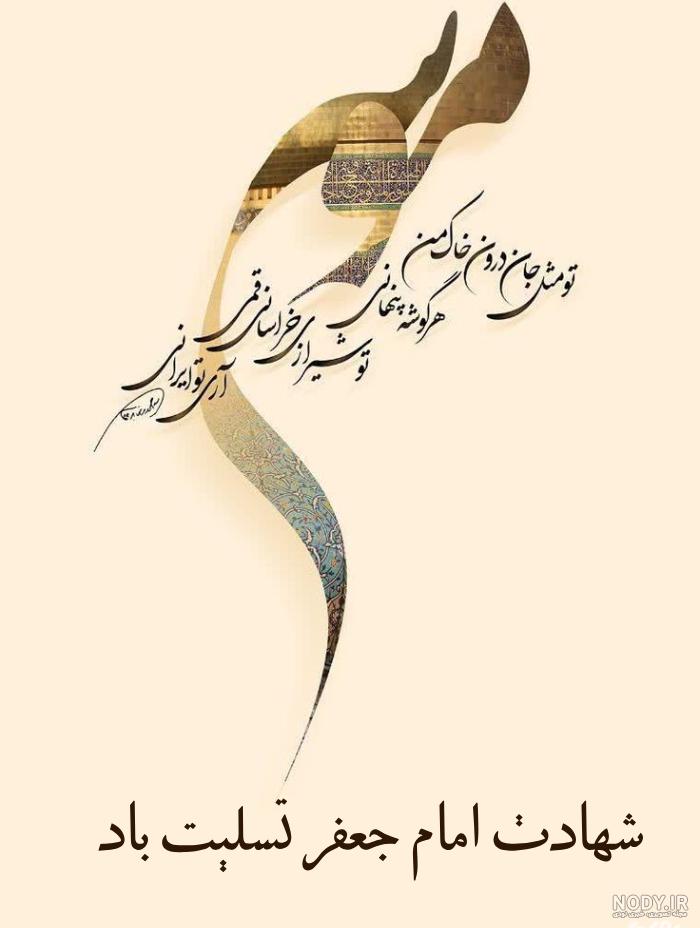 تو مثل جان درون خاک من
هر گوشه پنهانی
تو شیرازی خراسانی قمی
آری تو ایرانی
شهادت امام جعفر تسلیت باد
NODY.IR
مجله تصویری، خبری نودی